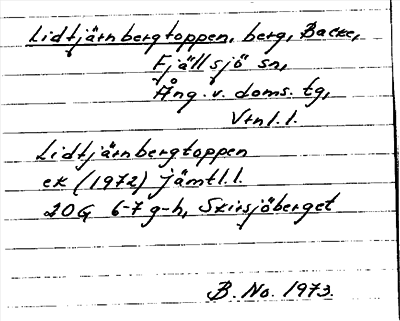 Lidtjärnbergtoppen, berg, Backe,
Fjällsjö sn,
Ång. v. doms. tg,
Vrnl. l.
Lidtjärnbergtoppen
ek (1972) Jämtl. l.
20G 6-7 g-h, Skirsjöberget
B. No. 1973.